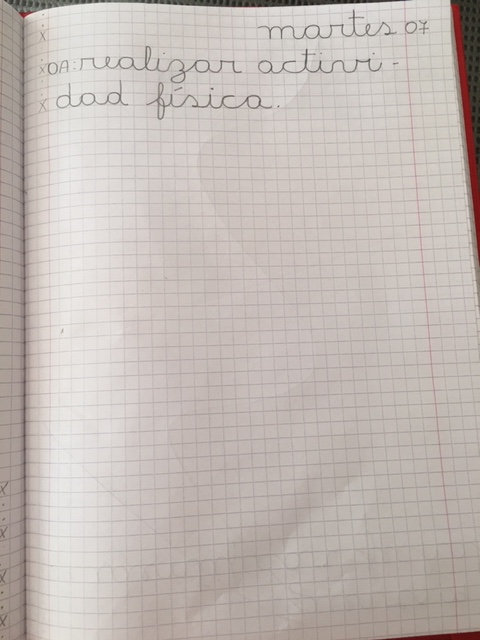 martes 07
OA: realizar activi-
dad física.